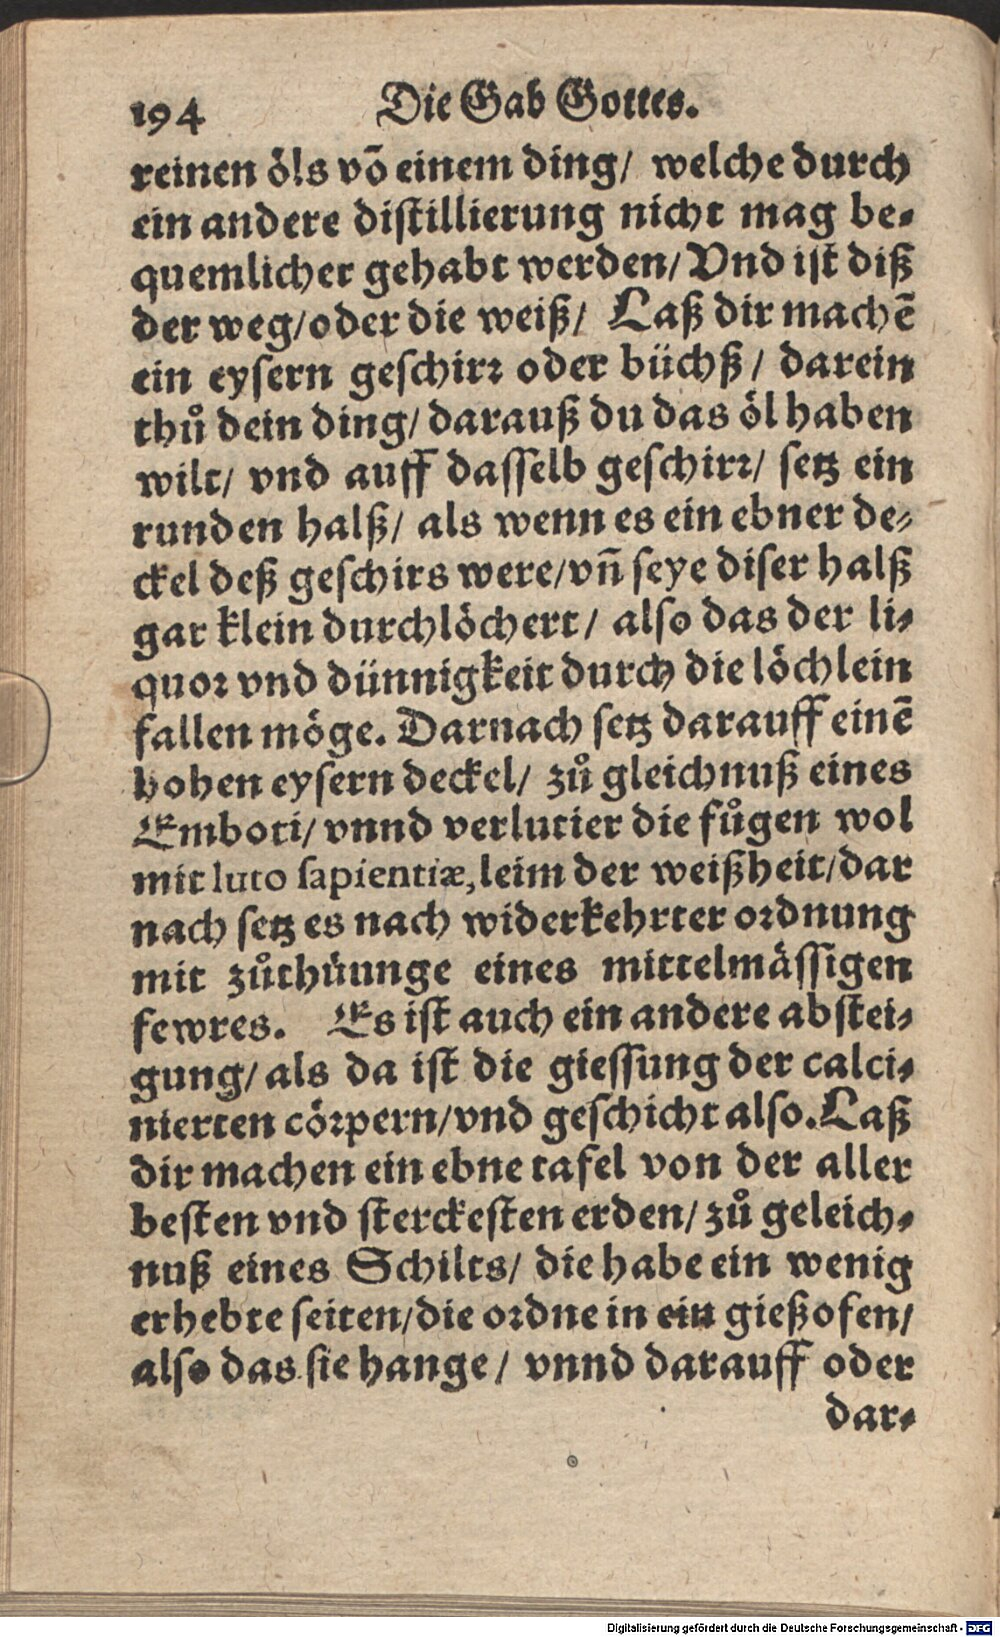 194 Die Gab Gottes.
reinen öls võ einem ding/ welche durch
ein andere distillierung nicht mag be-
quemlicher gehabt werden/ Vnd ist diß
der weg/ oder die weiß/ Laß dir machẽ
ein eysern geschirr oder büchß/ darein
thů dein ding/ darauß du das öl haben
wilt/ vnd auff dasselb geschirr/ setz ein
runden halß/ als wenn es ein ebner de-
ckel deß geschirs were/ vñ seye diser halß
gar klein durchlöchert/ also das der li-
quor vnd dünnigkeit durch die löchlein
fallen möge. Darnach setz darauff einẽ
hohen eysern deckel/ zů gleichnuß eines
Emboti/ vnnd verlutier die fůgen wol
mit luto sapientiæ, leim der weißheit/ dar
nach setz es nach widerkehrter ordnung
mit zůthüunge eines mittelmässigen
fewres. Es ist auch ein andere abstei-
gung/ als da ist die giessung der calci-
nierten cörpern/ vnd geschicht also. Laß
dir machen ein ebne tafel von der aller
besten vnd sterckesten erden/ zů geleich-
nuß eines Schilts/ die habe ein wenig
erhebte seiten/ die ordne in ein gießofen/
also das sie hange/ vnnd darauff oder
dar-
Digitalisierung gefördert durch die Deutsche Forschungsgemeinschaft - DFG